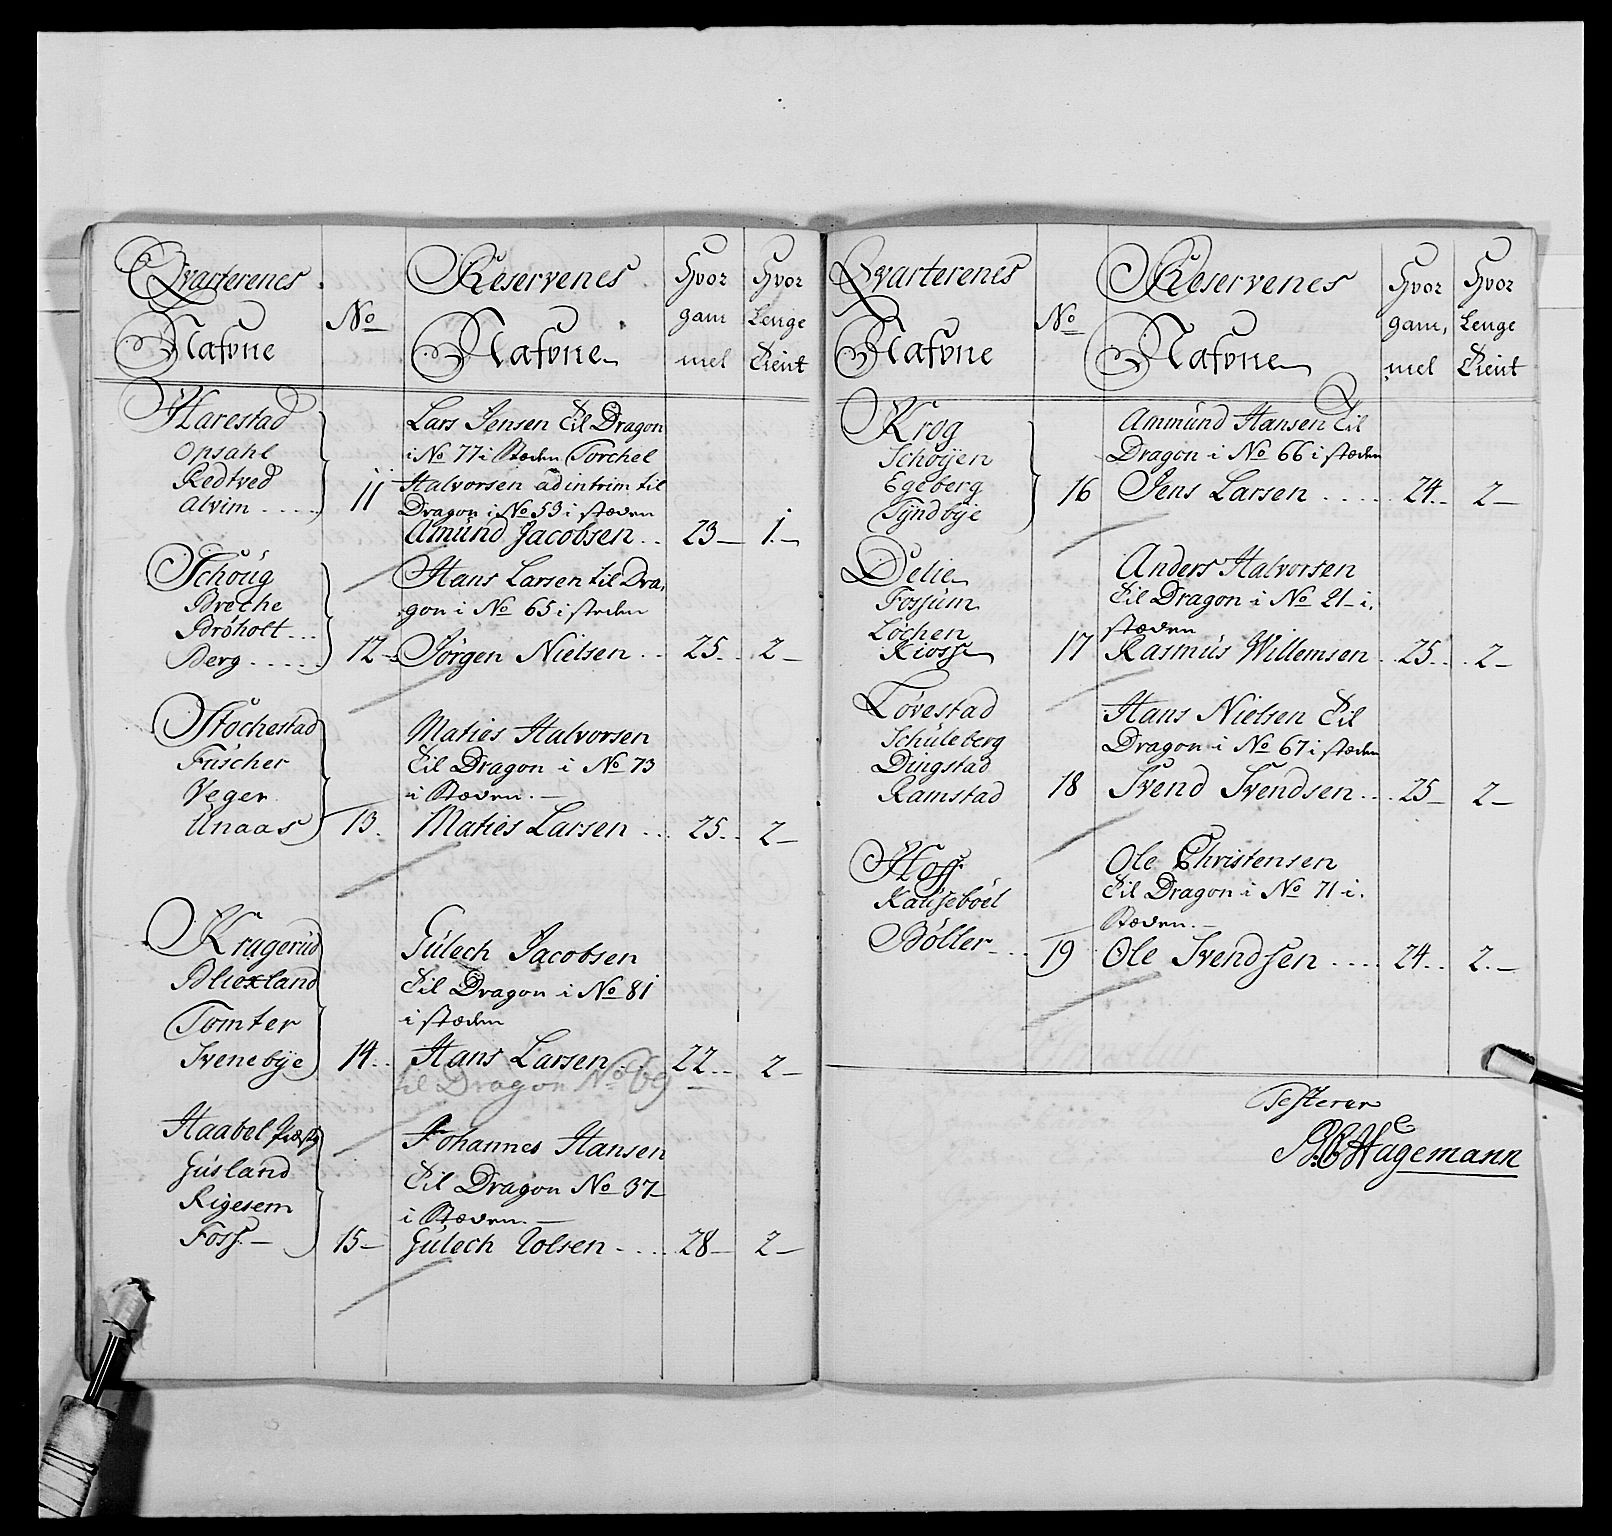 Qvarterenes Nafvne
No
Reservenes Nafvne
Hvor gam mel
Hvor Lenge Tient
Harestad
Opsahl
Redtved
Alvim .....
11
Lars Jensen Til Dragon
i No 77 i Stæden Torchel
Halvorsen ad intrim til
Dragon i No 53 i stæden
Amünd Jacobsen ..
23 —
1. —
Schoüg
Breche
Brøholt ...
Berg .....
12 -
Hans Larsen til Dra,
gon i No 65 i steden
Jørgen Nielsen ..
25 ..
2 —
Stochestad
Füscher
Veger
Unaas
13.
Maties Halvorsen
Til Dragon i No 73
i Stæden. —
Maties Larsen ...
25 ..
2 —
Kragerüd
Bliexland
Tomter
Svenebÿe
14 ..
Gülech Jacobsen
Til Dragon i No 81
i stæden
Hans Larsen ...
22 ..
2 —
til Dragon No 69
Haabel
Güsland
Rigesem
Foss. —
15 —
Johannes Hansen
Til Dragon No 37 —
i Stæden. —
Gülech Tolsen ....
28 —
2 —
Qvarterenes Nafvne
No
Reservenes Nafvne
Hvor gam, mel
Hvor Lenge Tient
Krog
Schoÿen
Egeberg
Tÿndbÿe
16
Ammünd Hansen Til
Dragon i No 66 i stæden
Jens Larsen .....
24 ..
2 —
Delie
Fossüm
Løchen
Kioss
17
Anders Halvorsen
Til Dragon i No 21 - i.
stæden
Rasmüs Willemsen ..
25 ..
2 —
Tovestad
Schüleberg
Dingstad
Ramstad
18
Hans Nielsen Til
Dragon i No 67 i stæden
Svend Svendsen ...
25 —
2 —
Hoff
Kaüseböel
Bøller ...
19
Ole Christensen
Til Dragon i No 71 i.
Stæden. —
Ole Svendsen ....
24 ..
2. —
Testerer
Hagemann